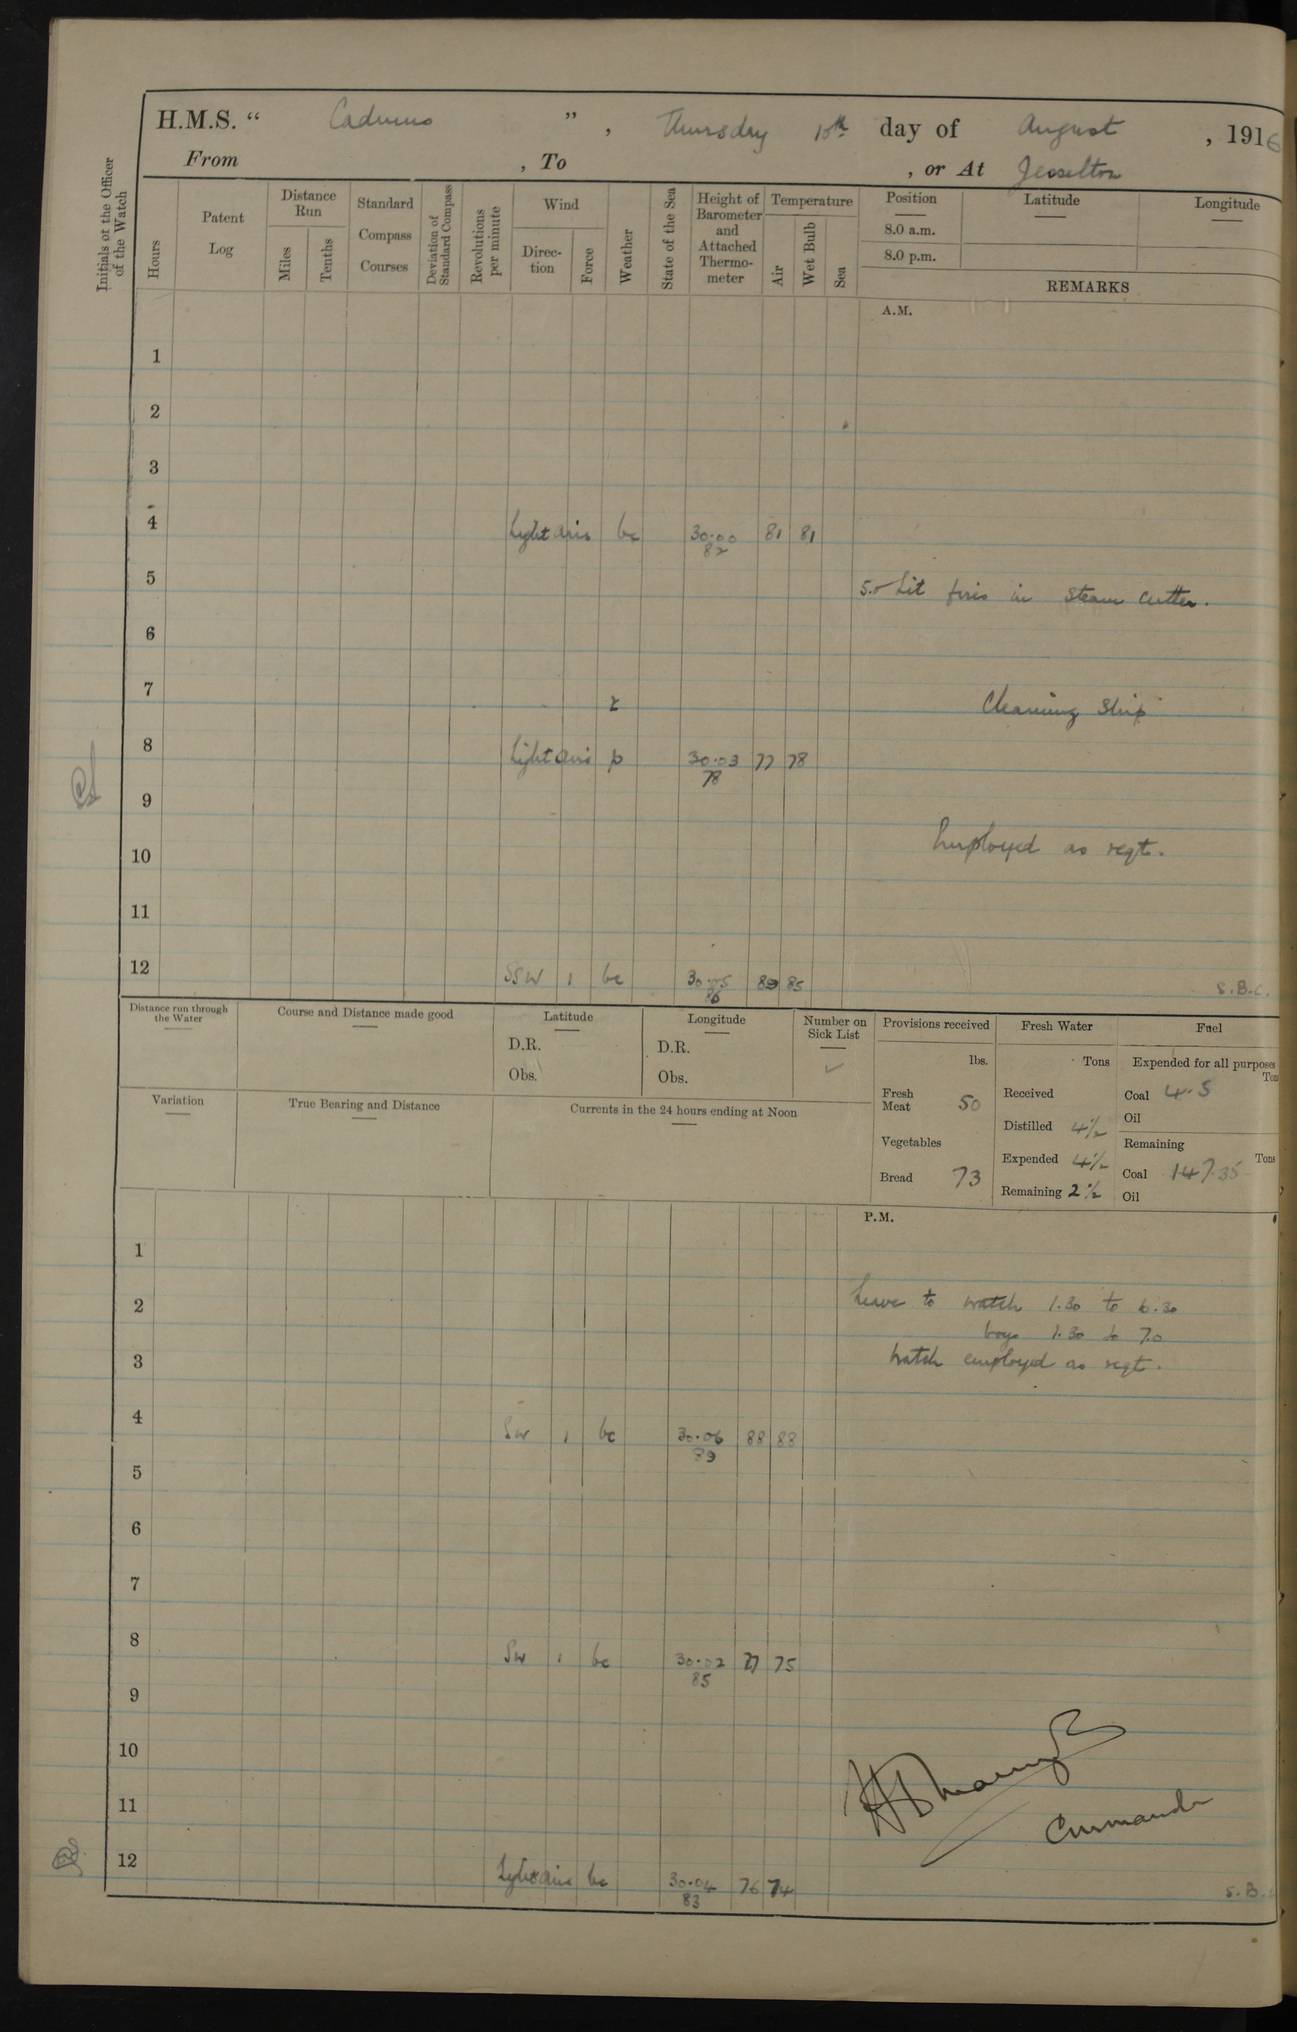 H.M.S. “ Cadmus ” , Thursday 10th day of August , 1916
From , To , or At Jesselton
Initials of the Officer of the Watch
Hours
Patent Log
Distance Run
Miles
Tenths
Standard Compass Courses
Deviation of Standard Compass
Revolutions per minute
Wind
Direc-tion
Force
Weather
State of the Sea
Height of Barometer and Attached Thermo-meter
Temperature
Air
Wet Bulb
Sea
Position
8.0 a.m.
8.0 p.m.
Latitude
Longitude
REMARKS
A.M.
1
2
3
4 Light airs bc 30.00 81 81
82
5 5.0 Lit fires in Steam Cutter.
6
7 Cleaning Ship
r
8 Light airs p 30.03 77 78
78
9
10 Employed as reqt.
11
12 SSW 1 bc 30.05 89 85
86
S.B.C.
Distance run through the Water
Course and Distance made good
Latitude
D.R.
Obs.
Longitude
D.R.
Obs.
Number on Sick List
✓
Variation
True Bearing and Distance
Currents in the 24 hours ending at Noon
Provisions received
lbs.
Fresh Meat 50
Vegetables
Bread 73
Fresh Water
Tons
Received
Distilled 4½
Expended 4½
Remaining 2½
Fuel
Expended for all purposes
Tons
Coal 4.5
Oil
Remaining
Tons
Coal 147.35
Oil
P.M.
1
2 Leave to watch 1.30 to 6.30
boys 1.30 to 7.0
3 Watch employed as reqt.
4 SW 1 bc 30.06 88 88
89
5
6
7
8 SW 1 bc 30.02 77 75
85
9
10
11
Commander
12 Light airs bc 30.04 76 74
83
S.B.